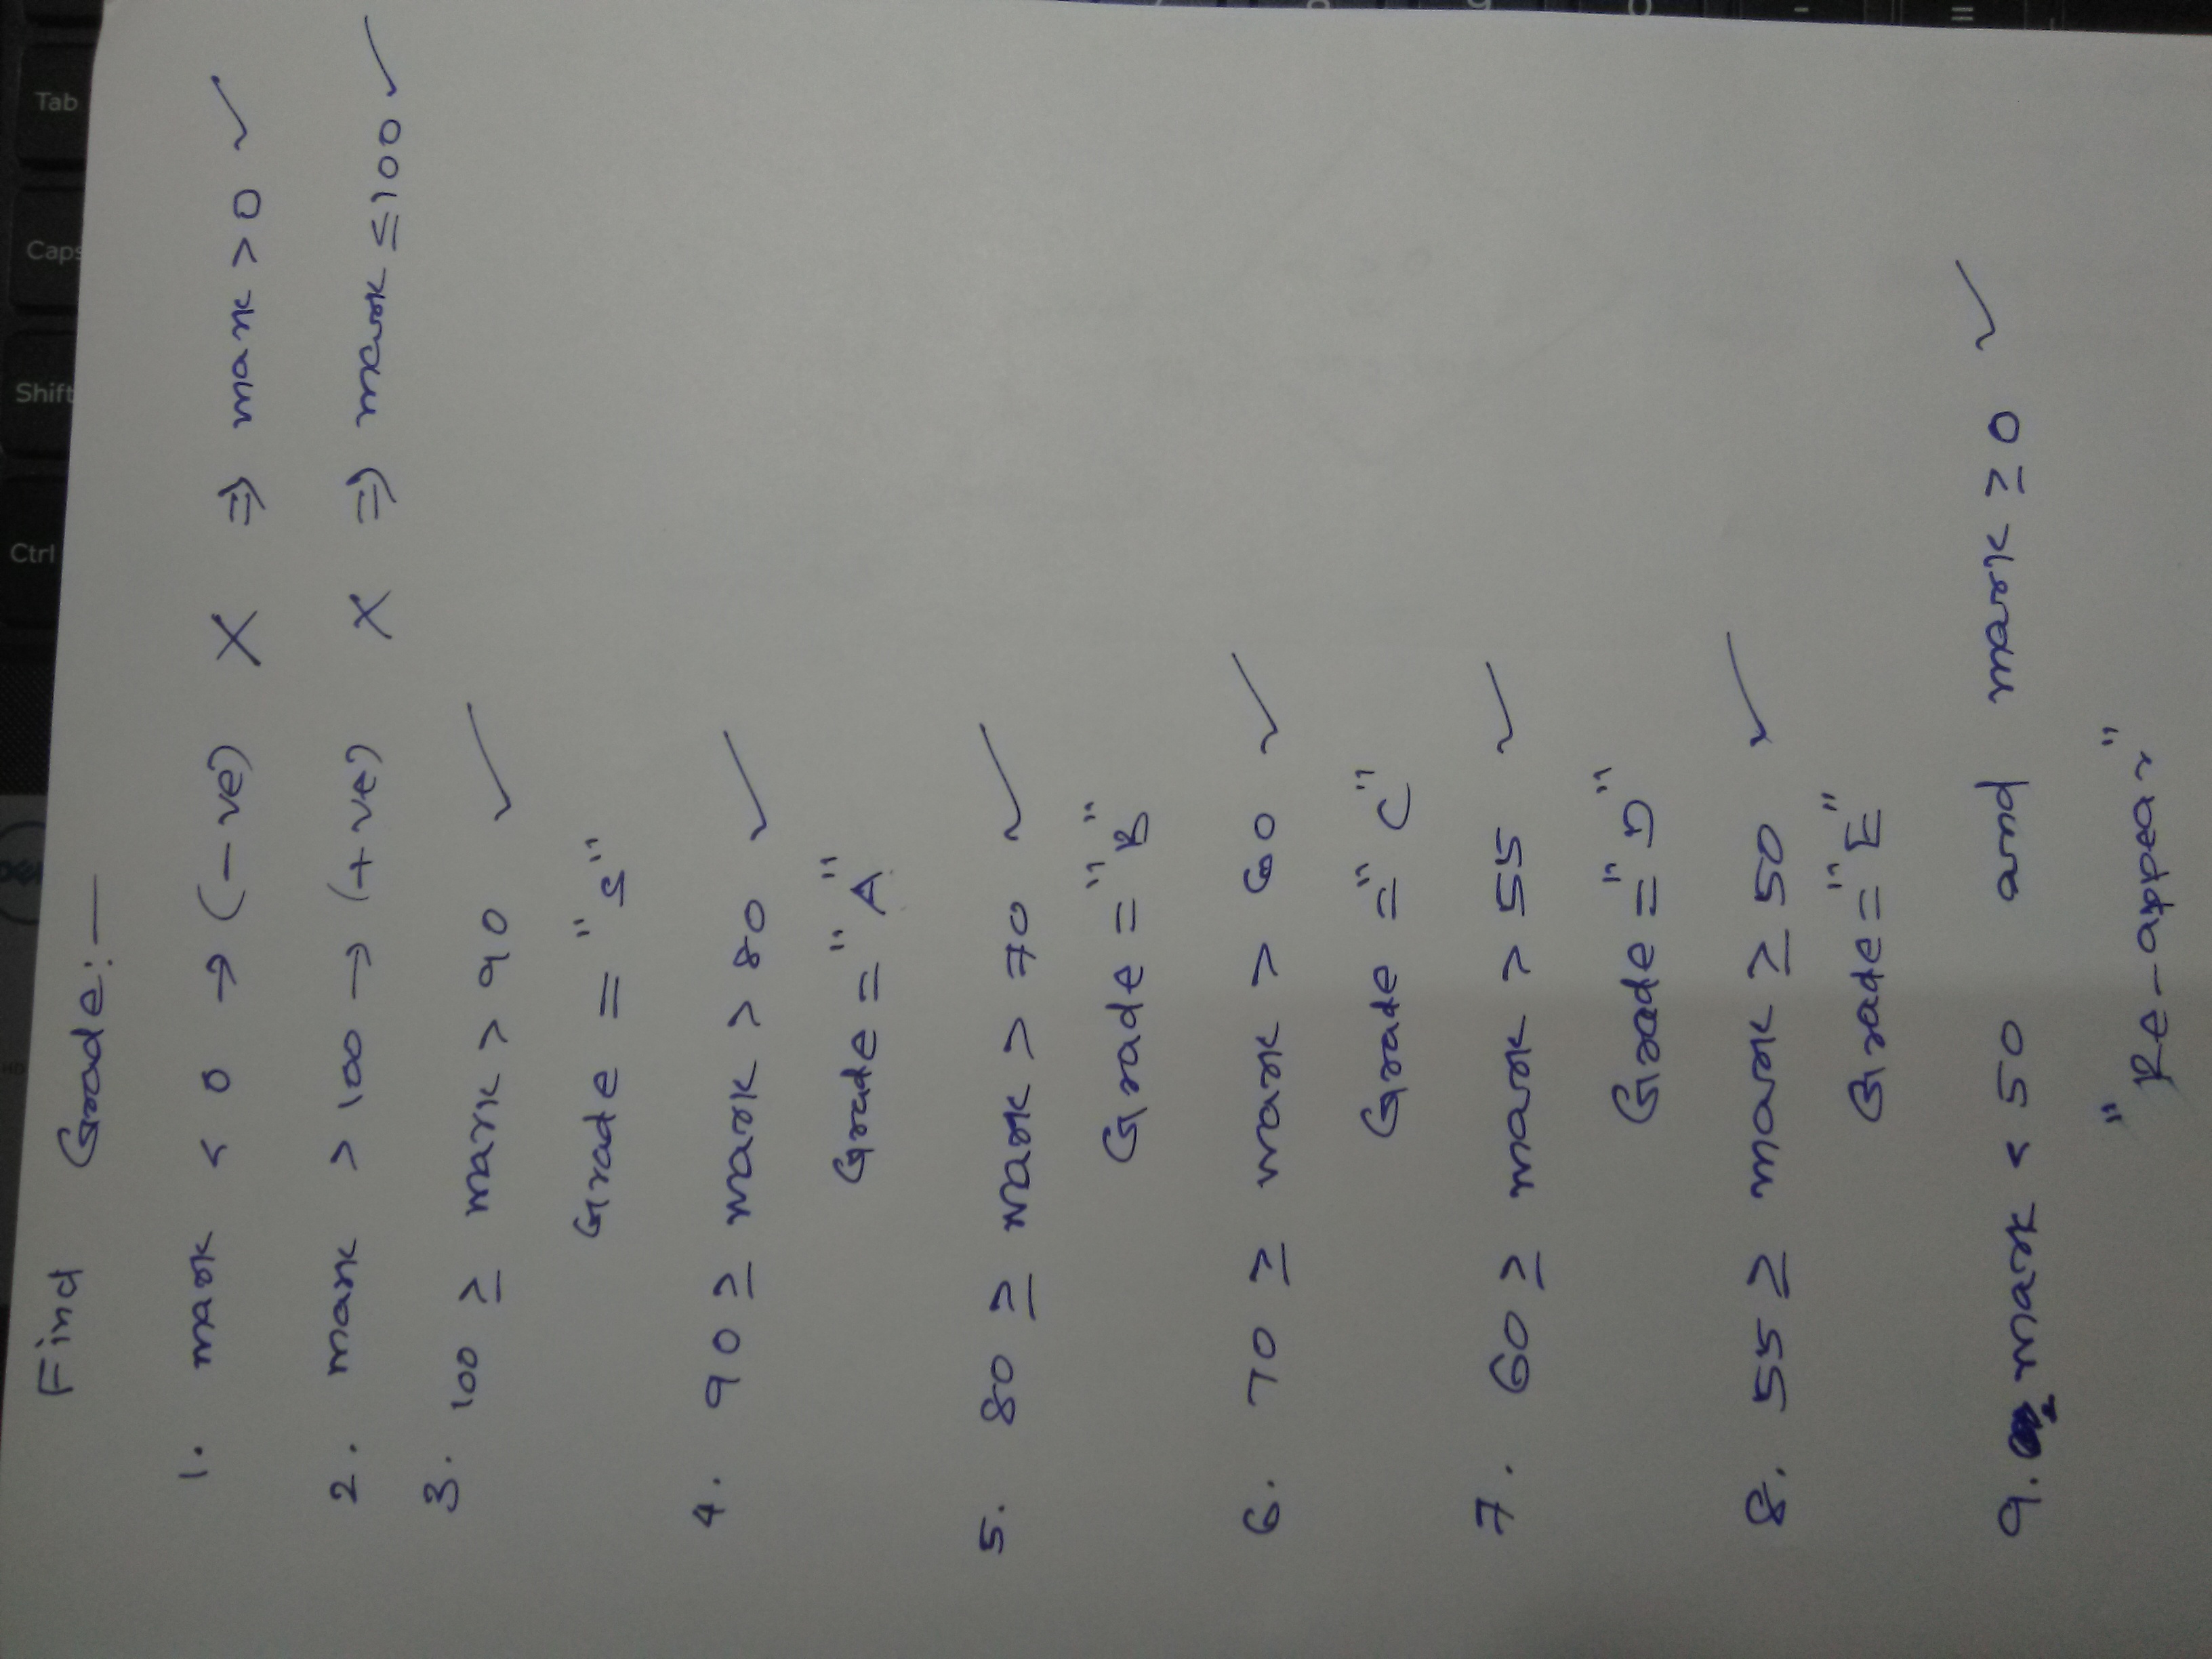 Ctrl
Shift
Caps
Tab
Find Grade:—
1. mark < 0 → (-ve) X ⇒ mark > 0 ✓
2. mark > 100 → (+ve) X ⇒ mark ≤ 100 ✓
3. 100 ≥ mark > 90 ✓
Grade = "S"
4. 90 ≥ mark > 80 ✓
Grade = "A"
5. 80 ≥ mark > 70 ✓
Grade = "B"
6. 70 ≥ mark > 60 ✓
Grade = "C"
7. 60 ≥ mark > 55 ✓
Grade = "D"
8. 55 ≥ mark ≥ 50 ✓
Grade = "E"
9. mark < 50 and mark ≥ 0 ✓
"Re-appear"